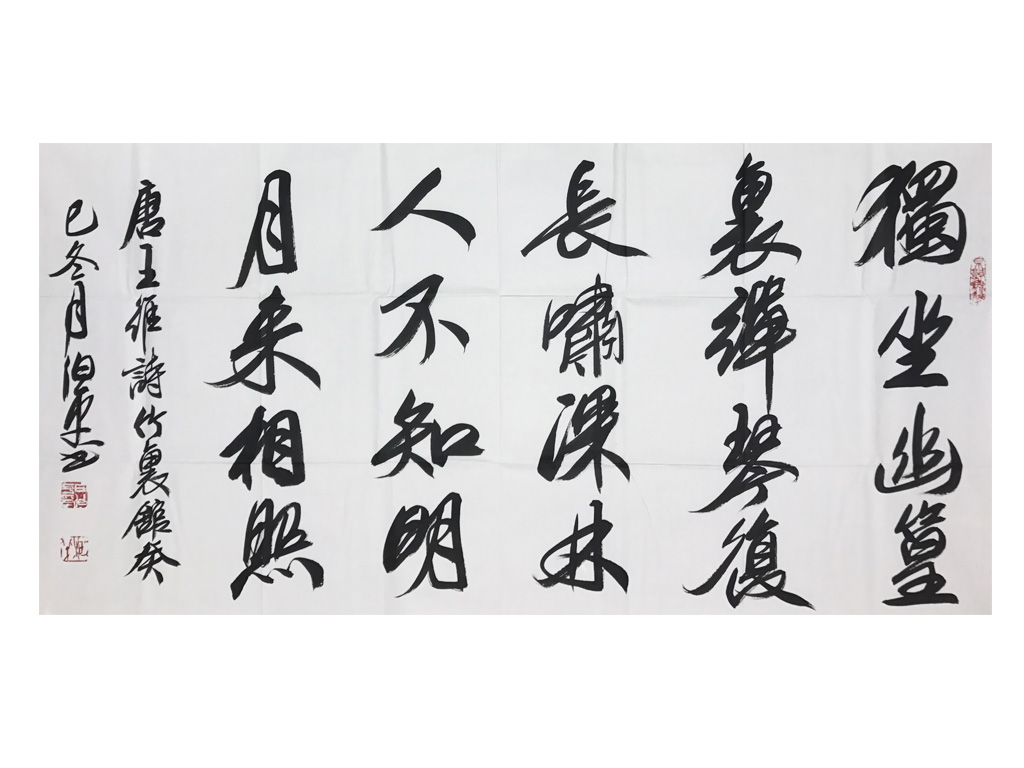 獨坐幽篁
裏彈琴復
長嘯深林
人不知明
月来相照
唐王維詩竹裏館癸
巳冬月书